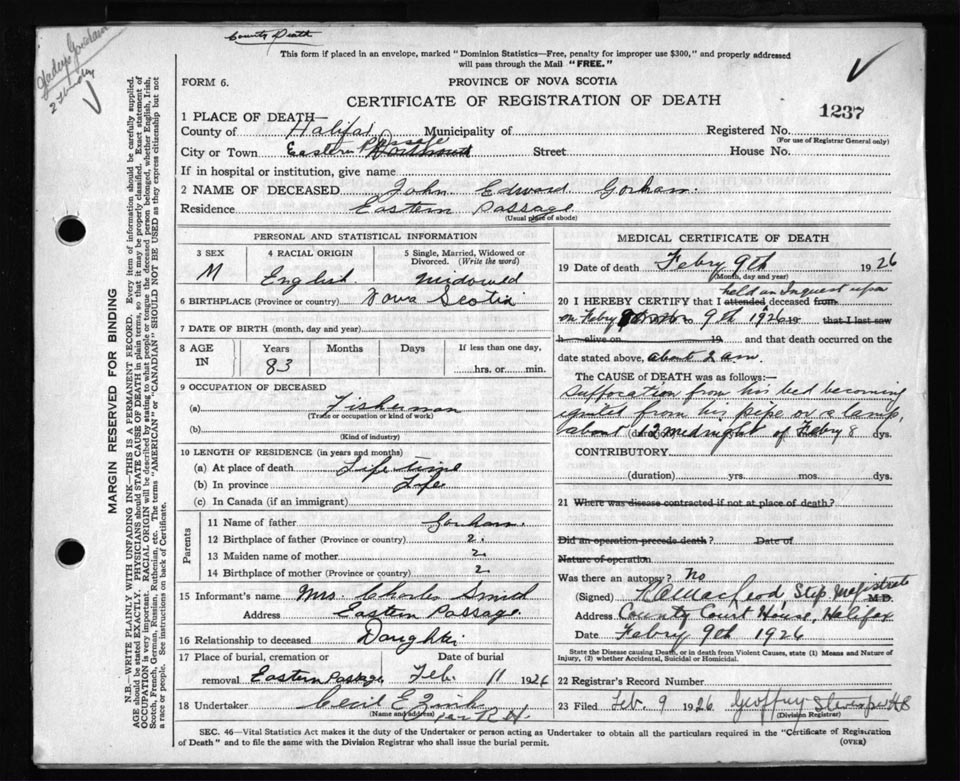 County Death
This form if placed in an envelope, marked "Dominion Statistics—Free, penalty for improper use $300," and properly addressed
will pass through the Mail "FREE."
FORM 6.
PROVINCE OF NOVA SCOTIA
CERTIFICATE OF REGISTRATION OF DEATH
1237
1 PLACE OF DEATH—
County of Halifax Municipality of Registered No.
(For use of Registrar General only)
City or Town Eastern Passage Dartmouth Street House No.
If in hospital or institution, give name
2 NAME OF DECEASED John Edward Gorham.
Residence Eastern Passage
(Usual place of abode)
PERSONAL AND STATISTICAL INFORMATION
3 SEX 4 RACIAL ORIGIN 5 Single, Married, Widowed or
Divorced. (Write the word)
M English widowed
6 BIRTHPLACE (Province or country) Nova Scotia
7 DATE OF BIRTH (month, day and year)
8 AGE IN Years Months Days If less than one day,
83 hrs. or min.
9 OCCUPATION OF DECEASED
(a) Fisherman
(Trade or occupation or kind of work)
(b)
(Kind of industry)
10 LENGTH OF RESIDENCE (in years and months)
(a) At place of death Life time
(b) In province Life
(c) In Canada (if an immigrant)
Parents
11 Name of father Gorham.
12 Birthplace of father (Province or country) 2.
13 Maiden name of mother 2
14 Birthplace of mother (Province or country) 2
15 Informant's name Mrs. Charles Smith
Address Eastern Passage
16 Relationship to deceased Daughter
17 Place of burial, cremation or Date of burial
removal Eastern Passage Feb. 11 1926
18 Undertaker Cecil E Zink
(Name and address)
per R H.
MEDICAL CERTIFICATE OF DEATH
19 Date of death Febry 9th 1926
(Month, day and year)
held an Inquest upon
20 I HEREBY CERTIFY that I attended deceased from
on Febry 9th 1926 19 that I last saw
h alive on 19 and that death occurred on the
date stated above, about 2 am.
The CAUSE of DEATH was as follows:—
Suffocation from his bed becoming
ignited from his pipe or a lamp,
about 12 midnight of Febry 8 dys.
CONTRIBUTORY
(duration) yrs. mos. dys.
21 Where was disease contracted if not at place of death?
Did an operation precede death? Date of
Nature of operation
Was there an autopsy? No
(Signed) MacLeod, Stip Magistrate M.D.
Address County Court House, Halifax
Date Febry 9th 1926
State the Disease causing Death, or in death from Violent Causes, state (1) Means and Nature of
Injury, (2) whether Accidental, Suicidal or Homicidal.
22 Registrar's Record Number
23 Filed Feb. 9 1926 Geoffrey
(Division Registrar)
SEC. 46—Vital Statistics Act makes it the duty of the Undertaker or person acting as Undertaker to obtain all the particulars required in the "Certificate of Registration
of Death" and to file the same with the Division Registrar who shall issue the burial permit.
(OVER)
MARGIN RESERVED FOR BINDING
N.B.—WRITE PLAINLY WITH UNFADING INK—THIS IS A PERMANENT RECORD. Every item of information should be carefully supplied.
AGE should be stated EXACTLY. PHYSICIANS should STATE CAUSE OF DEATH in plain terms, so that it may be properly classified. Exact statement of
OCCUPATION is very important. RACIAL ORIGIN will be described by stating to what people or tongue the deceased person belonged, whether English, Irish,
Scotch, French, German, Russian, Ruthenian, etc. The terms "AMERICAN" or "CANADIAN" SHOULD NOT BE USED as they express citizenship but not
a race or people. See instructions on back of Certificate.